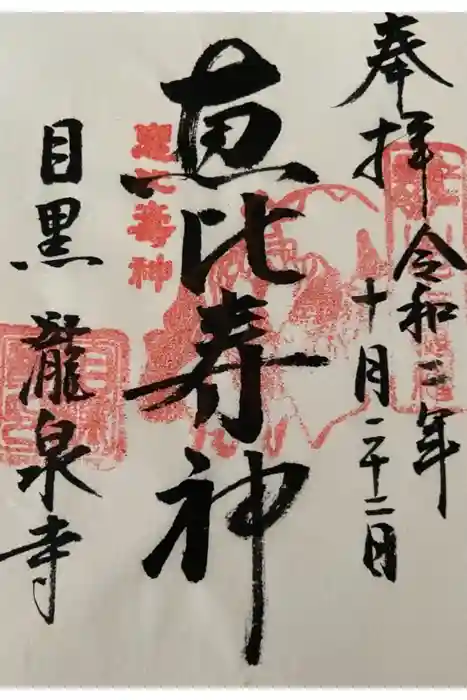 奉拝
令和二年
十月二十二日
恵比寿神
恵比寿神
目黒 瀧泉寺